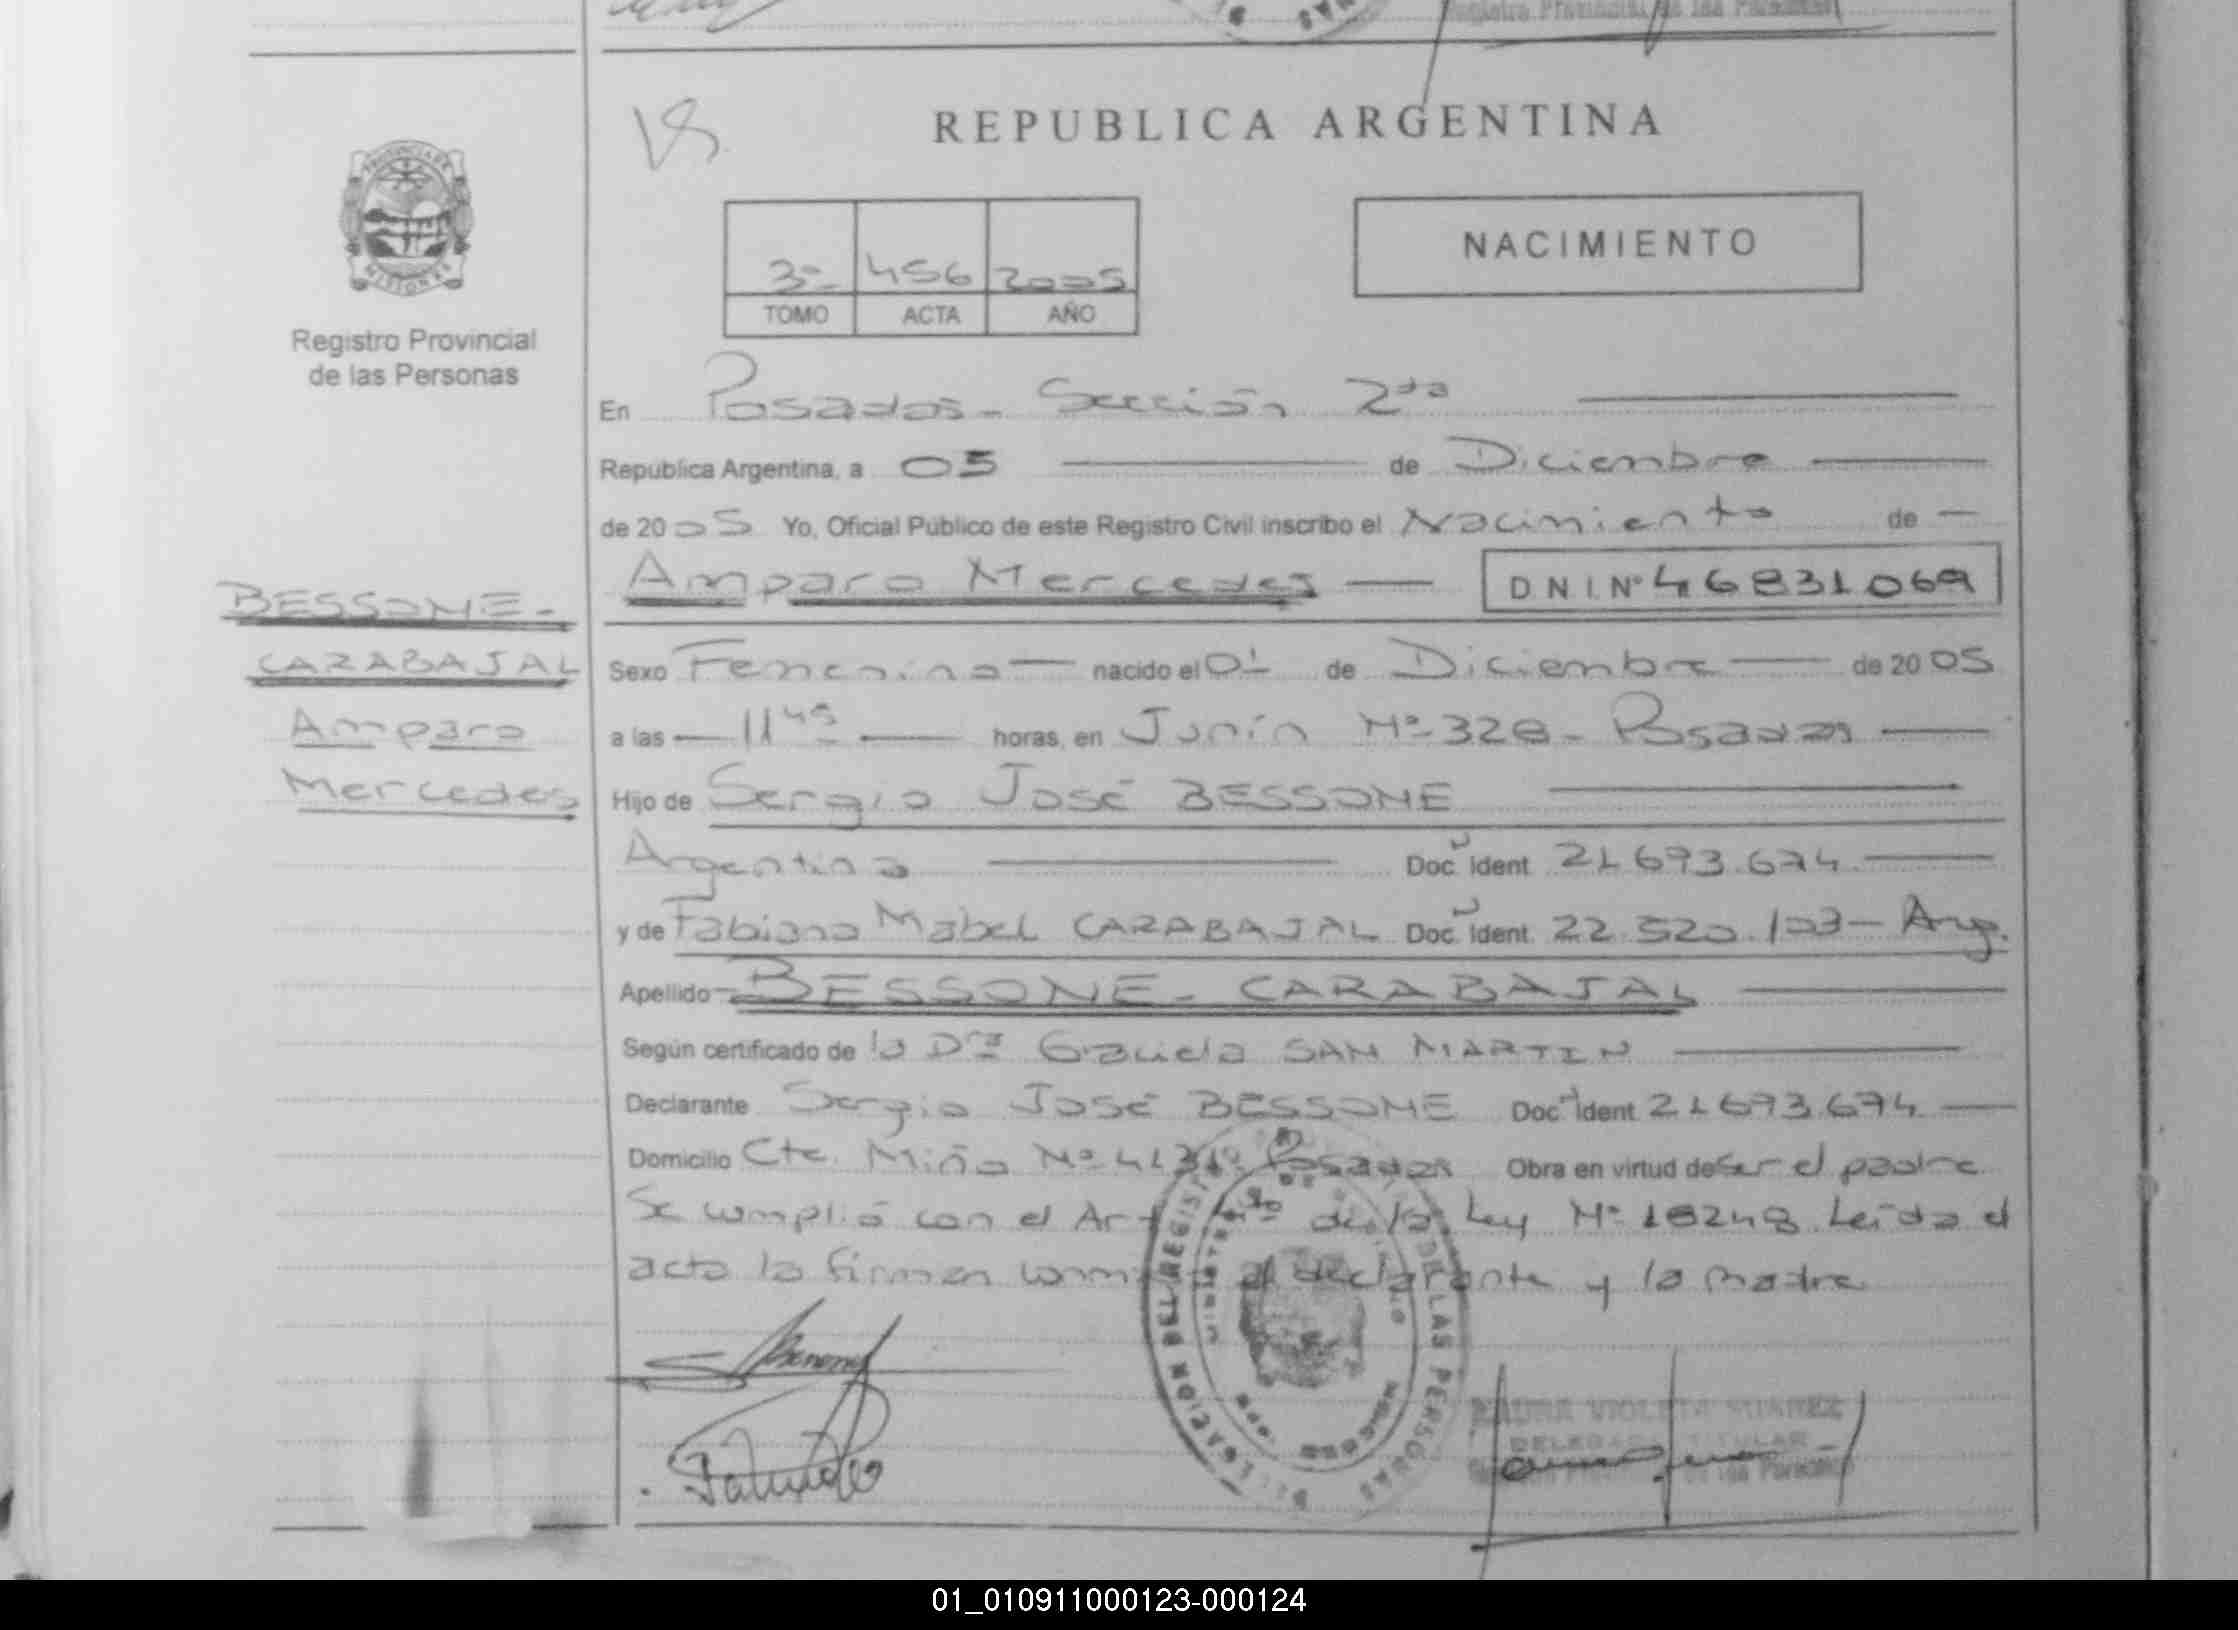 Registro Provincial de las Personas
REPUBLICA ARGENTINA
PROVINCIA DE
MISIONES
Registro Provincial
de las Personas
3º 456 2005
TOMO ACTA AÑO
NACIMIENTO
En Posadas - Sección 2da
Republica Argentina, a 05 de Diciembre
de 2005 Yo, Oficial Público de este Registro Civil inscribo el Nacimiento de
Amparo Mercedes D N I. Nº 46831069
BESSONE -
CARABAJAL
Amparo
Mercedes
Sexo Femenino nacido el 01 de Diciembre de 2005
a las 11 45 horas, en Junín Nº 328 - Posadas
Hijo de Sergio José BESSONE
Argentina Doc. Ident 21.693.674
y de Fabiana Mabel CARABAJAL Doc. Ident. 22.520.103 - Arg.
Apellido BESSONE - CARABAJAL
Según certificado de la Dra Graciela SAN MARTIN
Declarante Sergio José BESSONE Doc. Ident 21693.674
Domicilio Cte. Miño Nº Posadas Obra en virtud de ser el padre
Se cumplió con el Art de la Ley Nº 18248 Leída el
acta la firman el declarante y la madre
DELEGACION DEL REGISTRO DE LAS PERSONAS
VIOLETA SUAREZ
DELEGADA TITULAR
de las Personas
01_010911000123-000124